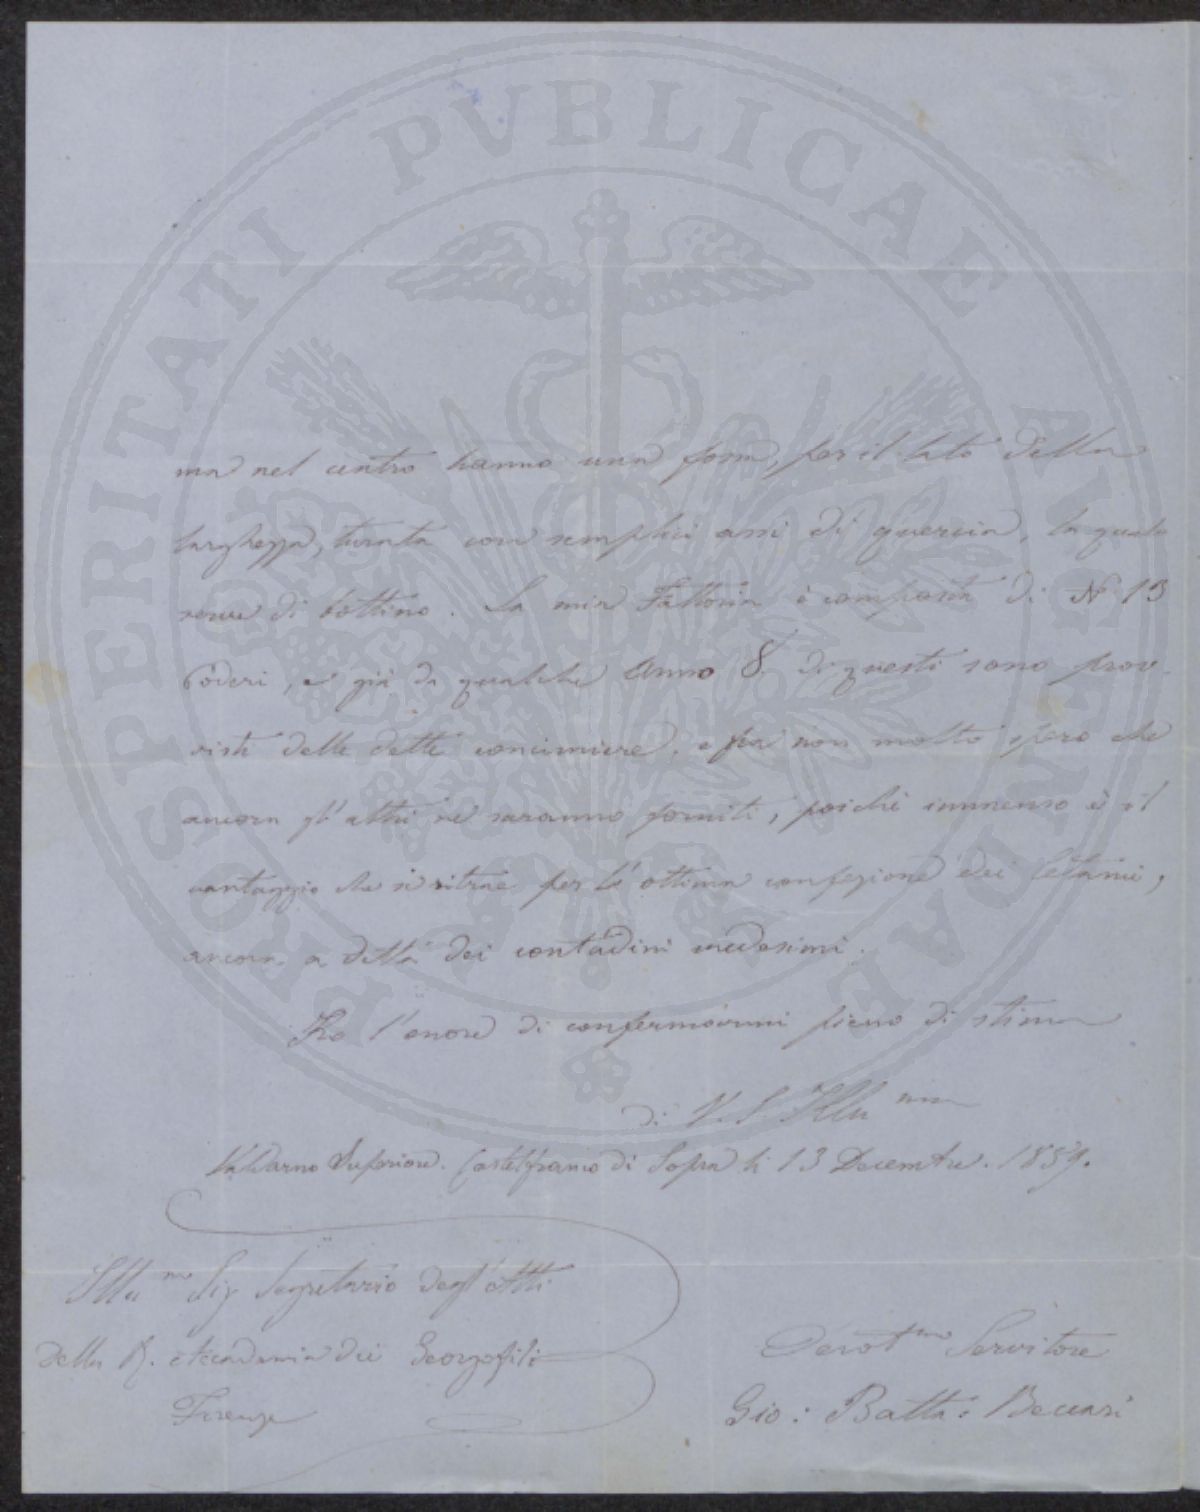 PROSPERITATI PVBLICAE AVGENDAE
ma nel centro hanno una fossa, per il lato della
larghezza, turata con semplici assi di quercia, la quale
serve di bottino. La mia Fattoria è composta di N° 13
Poderi, e già da qualche Anno 8. di questi sono prov-
visti delle dette concimiere, e fra non molto spero che
ancora gl'altri ne saranno forniti, poichè immenso è il
vantaggio che si ritrae per l'ottima confezione dei letami,
ancora a detta dei contadini medesimi.
Ho l'onore di confermarmi pieno di stima
di V. S. Illu ma
Valdarno Superiore. Castelfranco di Sopra li 13 Decembre. 1859.
Illu mo Sig Segretario degl'Atti
della R. Accademia dei Georgofili
Firenze
Devot mo Servitore
Gio: Batta: Beccari